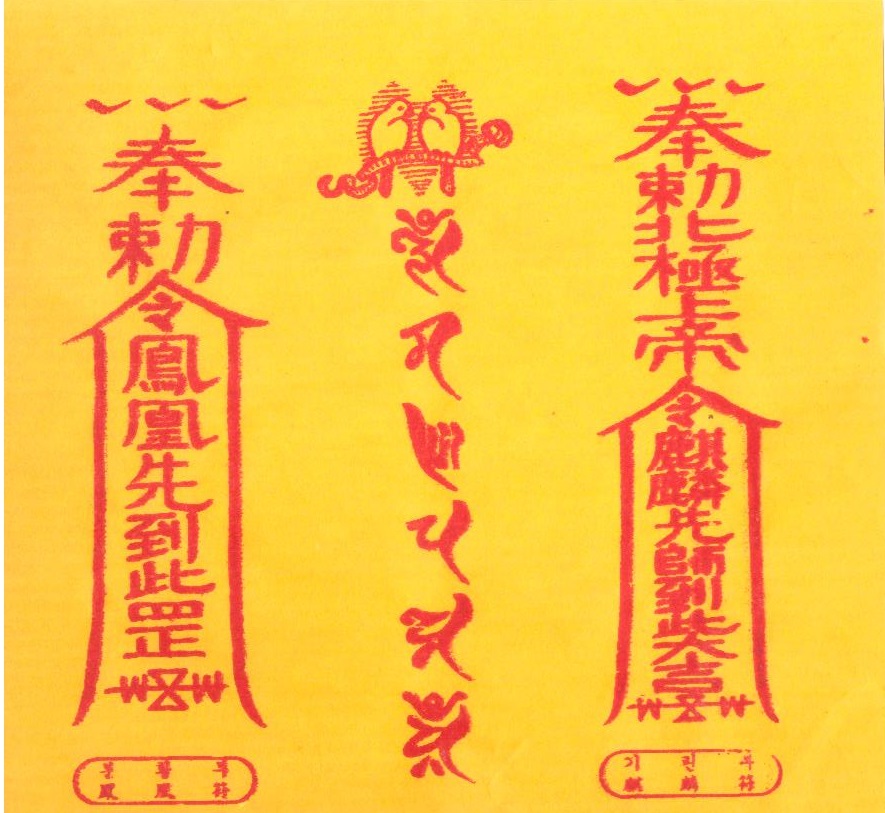 奉勅令鳳凰先到此罡
봉 황 부
鳳 凰 符
奉勅北極上帝令麒麟先師到此大吉
기 린 부
麒 麟 符